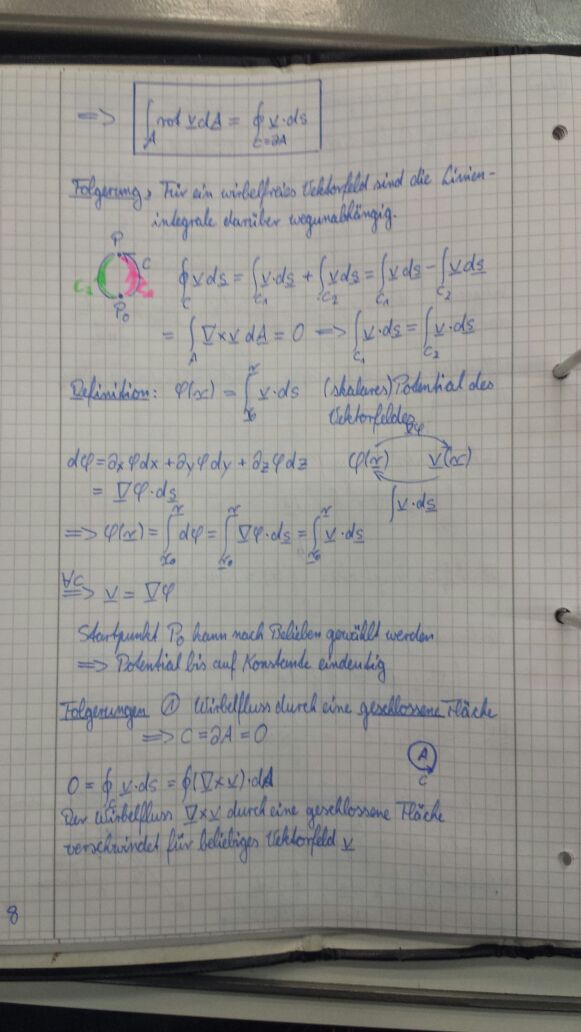 ⟹ ∫_A rot v̲ dA̲ = ∮_{C=∂A} v̲·ds̲
Folgerung, Für ein wirbelfreies Vektorfeld sind die Linien-
integrale darüber wegunabhängig.
P
C
C₂
C₁
P₀
∮_C v̲ ds̲ = ∫_{C₁} v̲·ds̲ + ∫_{C₂} v̲ ds̲ = ∫_{C₁} v̲ ds̲ − ∫_{C₂} v̲ ds̲
= ∫_A ∇̲×v̲ dA̲ = 0 ⟹ ∫_{C₁} v̲·ds̲ = ∫_{C₂} v̲·ds̲
Definition: φ(x) = ∫_{x₀}^{x} v̲·ds̲ (skalares) Potential des
Vektorfeldes
dφ = ∂ₓφdx + ∂ᵧφdy + ∂_zφdz
∇̲φ
φ(x̲) v̲(x)
∫v̲·ds̲
= ∇̲φ·ds̲
⟹ φ(x̲) = ∫_{x₀}^{x} dφ = ∫_{x₀}^{x} ∇̲φ·ds̲ = ∫_{x₀}^{x} v̲·ds̲
∀C ⟹ v̲ = ∇̲φ
Startpunkt P₀ kann nach Belieben gewählt werden
⟹ Potential bis auf Konstande eindeutig
Folgerungen ① Wirbelfluss durch eine geschlossene Fläche
⟹ C = ∂A = 0
A
C
0 = ∮_C v̲·ds̲ = ∮(∇̲×v̲)·dA̲
Der Wirbelfluss ∇̲×v̲ durch eine geschlossene Fläche
verschwindet für beliebiges Vektorfeld v̲
8